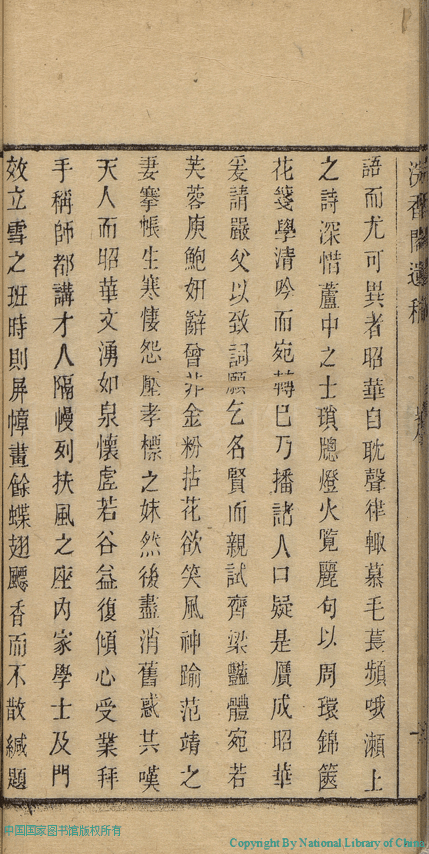 浣香閣遺稿
語而尤可異者昭華自耽聲律輙慕毛萇頻哦瀨上
之詩深惜蘆中之士瑣牎燈火覧麗句以周環錦篋
花箋學清吟而宛轉巳乃播諸人口疑是贋成昭華
爰請嚴父以致詞願乞名賢而親試齊梁豔體宛若
芙蓉庾鮑妍辭曾非金粉拈花欲笑風神踰范靖之
妻搴帳生寒悽怨壓孝標之妹然後盡消舊惑共嘆
天人而昭華文湧如泉懷虛若谷益復傾心受業拜
手稱師都講才人隔幔列扶風之座内家學士及門
效立雪之班時則屏幛畫餘蝶翅飃香而不散緘題
中国国家图书馆版权所有
Copyright By National Library of China